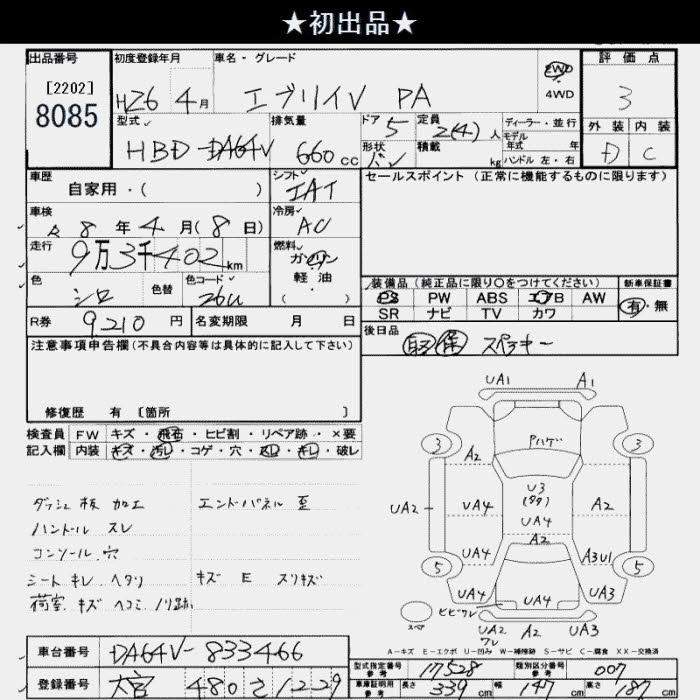 ★初出品★
出品番号 初度登録年月 車名・グレード 評価点
[2202]
8085
H26 4月 エブリイV PA 2WD 4WD 3
型式 排気量 ドア 定員 ディーラー・並行 外装 内装
HBD-DA64V 660cc 5 2(4)人 モデル年式 年 D C
形状 バン 積載 kg ハンドル 左・右
車歴 シフト セールスポイント(正常に機能するものに限ります)
自家用・( ) IAT
車検 冷房
8年4月(8日) AC
走行 燃料
9万3千402km ガソリン
軽油
色 色替 色コード (・)
シロ 26U
装備品(純正品に限り○をつけてください) 新車保証書
PS PW ABS エアB AW 有・無
SR ナビ TV カワ
R券 9210円 名変期限 月 日
後日品 取 保 スペアキー
注意事項申告欄(不具合内容等は具体的に記入して下さい)
修復歴 有 〔箇所 〕
検査員 FW キズ・飛石・ヒビ割・リペア跡・×要
記入欄 内装 キズ・汚レ・コゲ・穴・スレ・キレ・破レ
ダッシュ板 加工 エンドパネル 歪
ハンドル スレ
コンソール 穴
シート キレ ヘタリ キズ E スリキズ
荷室 キズ ヘコミ ノリ跡
UA1 A1
3 Pハゲ 3
A2
U3
UA2 UA4 UA4 A2
A2
UA4 A3U1
5 5
UA4 UA4 UA3
スペア ヒビワレ
UA2 ワレ A2 UA3
A-キズ E-エクボ U-凹み W-補修跡 S-サビ C-腐食 XX-交換済
車台番号 DA64V-833466
型式指定番号 参考 17528 類別区分番号 参考 007
登録番号 大宮 480 さ 1229
車庫証明用 参考 長さ 339cm 幅 147cm 高さ 187cm